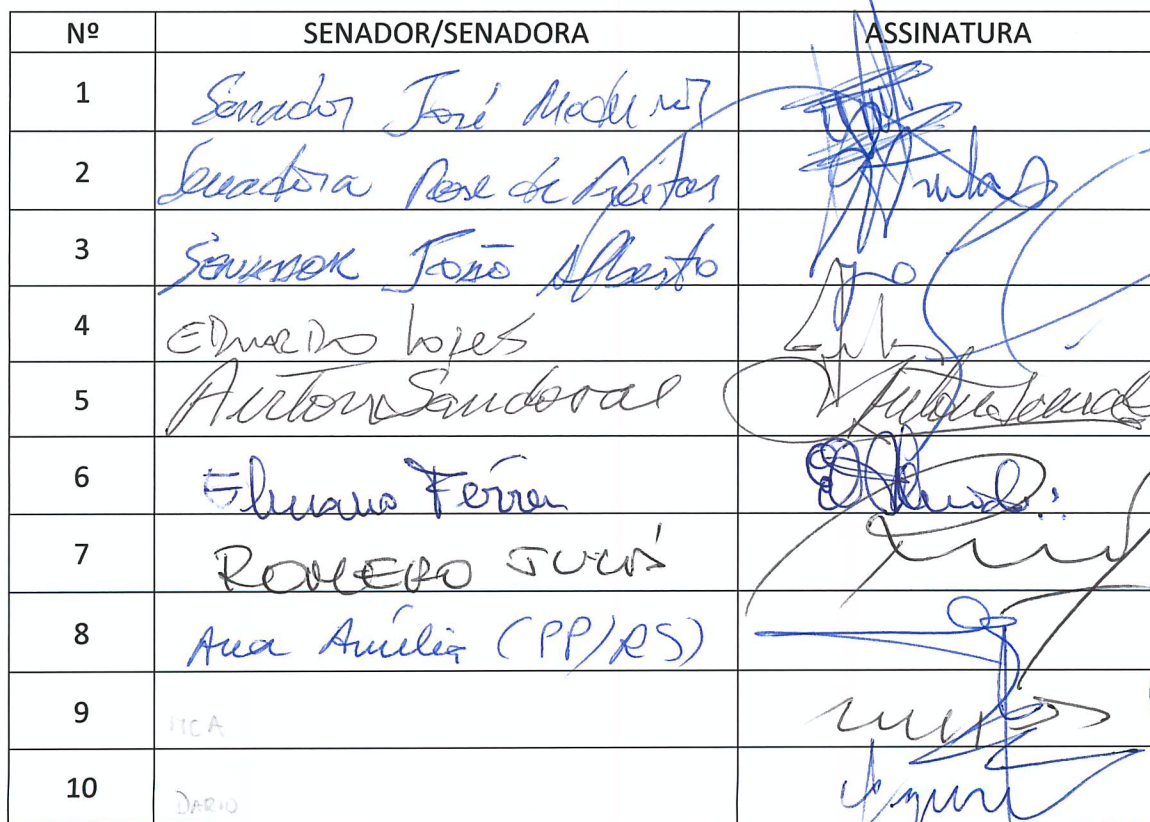 Nº SENADOR/SENADORA ASSINATURA
1 Senador José Medeiros
2 Senadora Rose de Freitas
3 SENADOR João Alberto
4 EDUARDO Lopes
5 Airton Sandoval Airton Sandoval
6 Elmano Férrer
7 ROMERO JUCÁ
8 Ana Amélia (PP/RS)
9 MCA
10 DARIO